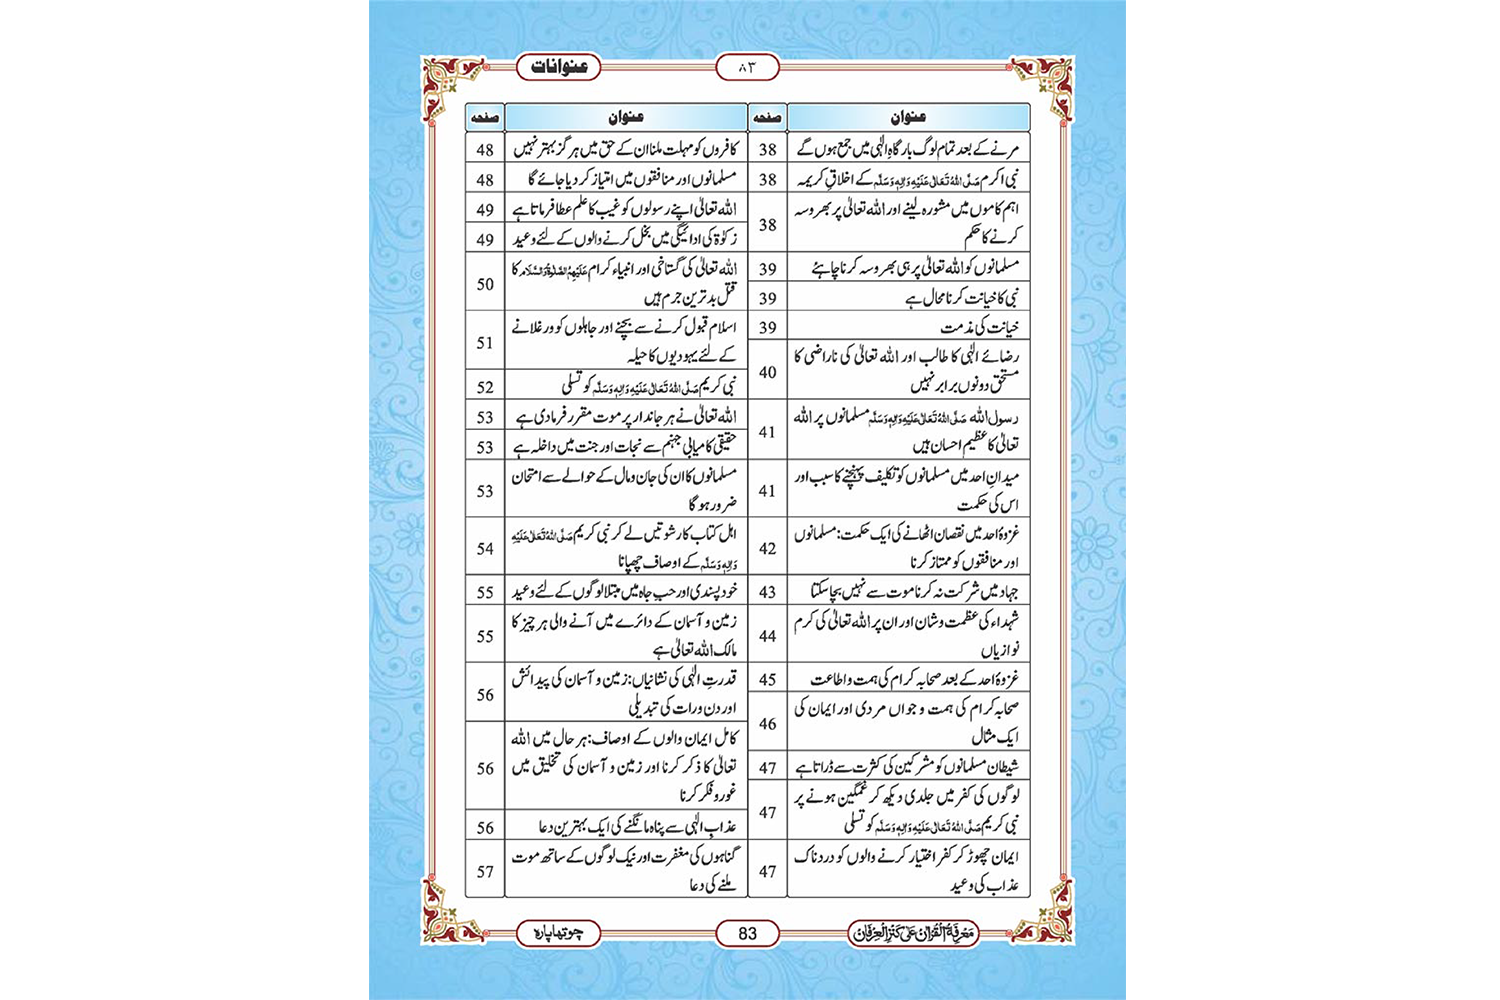 عنوانات
۸۳
عنوان
صفحہ
مرنے کے بعد تمام لوگ بارگاہِ الٰہی میں جمع ہوں گے
38
نبی اکرم صَلَّى اللهُ تَعَالٰى عَلَيْهِ وَاٰلِهٖ وَسَلَّم کے اخلاقِ کریمہ
38
اہم کاموں میں مشورہ لینے اور اللہ تعالیٰ پر بھروسہ
کرنے کا حکم
38
مسلمانوں کو اللہ تعالیٰ پر ہی بھروسہ کرنا چاہئے
39
نبی کا خیانت کرنا محال ہے
39
خیانت کی مذمت
39
رضائے الٰہی کا طالب اور اللہ تعالیٰ کی ناراضی کا
مستحق دونوں برابر نہیں
40
رسول اللہ صَلَّى اللهُ تَعَالٰى عَلَيْهِ وَاٰلِهٖ وَسَلَّم مسلمانوں پر اللہ
تعالیٰ کا عظیم احسان ہیں
41
میدانِ احد میں مسلمانوں کو تکلیف پہنچنے کا سبب اور
اس کی حکمت
41
غزوۂ احد میں نقصان اٹھانے کی ایک حکمت: مسلمانوں
اور منافقوں کو ممتاز کرنا
42
جہاد میں شرکت نہ کرنا موت سے نہیں بچا سکتا
43
شہداء کی عظمت و شان اور ان پر اللہ تعالیٰ کی کرم
نوازیاں
44
غزوۂ احد کے بعد صحابہ کرام کی ہمت و اطاعت
45
صحابہ کرام کی ہمت و جواں مردی اور ایمان کی
ایک مثال
46
شیطان مسلمانوں کو مشرکین کی کثرت سے ڈراتا ہے
47
لوگوں کی کفر میں جلدی دیکھ کر غمگین ہونے پر
نبی کریم صَلَّى اللهُ تَعَالٰى عَلَيْهِ وَاٰلِهٖ وَسَلَّم کو تسلی
47
ایمان چھوڑ کر کفر اختیار کرنے والوں کو دردناک
عذاب کی وعید
47
عنوان
صفحہ
کافروں کو مہلت ملنا ان کے حق میں ہرگز بہتر نہیں
48
مسلمانوں اور منافقوں میں امتیاز کر دیا جائے گا
48
اللہ تعالیٰ اپنے رسولوں کو غیب کا علم عطا فرماتا ہے
49
زکوٰۃ کی ادائیگی میں بخل کرنے والوں کے لئے وعید
49
اللہ تعالیٰ کی گستاخی اور انبیاءِ کرام عَلَيْهِمُ الصَّلٰوةُ وَالسَّلَام کا
قتل بدترین جرم ہیں
50
اسلام قبول کرنے سے بچنے اور جاہلوں کو ورغلانے
کے لئے یہودیوں کا حیلہ
51
نبی کریم صَلَّى اللهُ تَعَالٰى عَلَيْهِ وَاٰلِهٖ وَسَلَّم کو تسلی
52
اللہ تعالیٰ نے ہر جاندار پر موت مقرر فرما دی ہے
53
حقیقی کامیابی جہنم سے نجات اور جنت میں داخلہ ہے
53
مسلمانوں کا ان کی جان و مال کے حوالے سے امتحان
ضرور ہو گا
53
اہل کتاب کا رشوتیں لے کر نبی کریم صَلَّى اللهُ تَعَالٰى عَلَيْهِ
وَاٰلِهٖ وَسَلَّم کے اوصاف چھپانا
54
خود پسندی اور حبِ جاہ میں مبتلا لوگوں کے لئے وعید
55
زمین و آسمان کے دائرے میں آنے والی ہر چیز کا
مالک اللہ تعالیٰ ہے
55
قدرتِ الٰہی کی نشانیاں: زمین و آسمان کی پیدائش
اور دن ورات کی تبدیلی
56
کامل ایمان والوں کے اوصاف: ہر حال میں اللہ
تعالیٰ کا ذکر کرنا اور زمین و آسمان کی تخلیق میں
غور و فکر کرنا
56
عذابِ الٰہی سے پناہ مانگنے کی ایک بہترین دعا
56
گناہوں کی مغفرت اور نیک لوگوں کے ساتھ موت
ملنے کی دعا
57
مَعْرِفَةُ الْقُرْاٰن عَلٰى كَنْزُ الْعِرْفَان
83
چوتھا پارہ